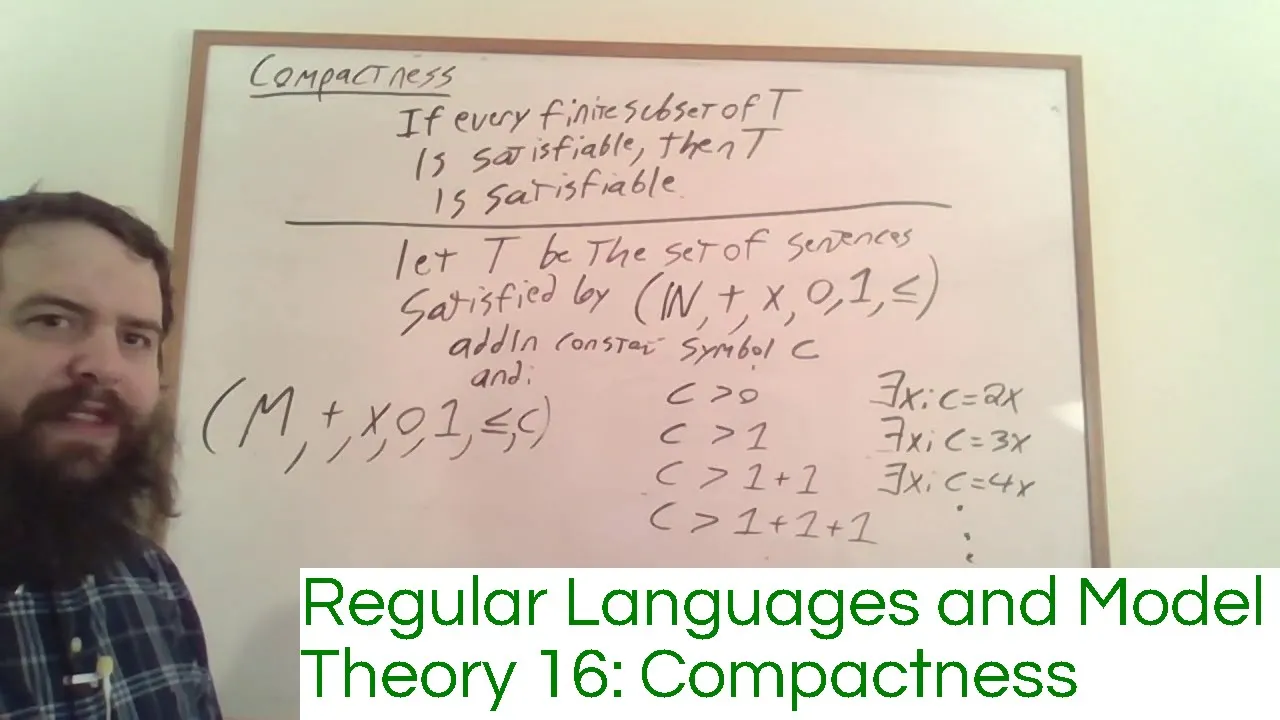 Compactness
If every finite subset of T
Is satisfiable, then T
Is satisfiable.
let T be the set of sentences
Satisfied by (ℕ, +, x, 0, 1, ≤)
add in constat symbol C
and:
(M, +, x, 0, 1, ≤, c)
C > 0
∃x: C = 2x
C > 1
∃x: C = 3x
C > 1 + 1
∃x: C = 4x
C > 1 + 1 + 1
⋮
Regular Languages and Model
Theory 16: Compactness